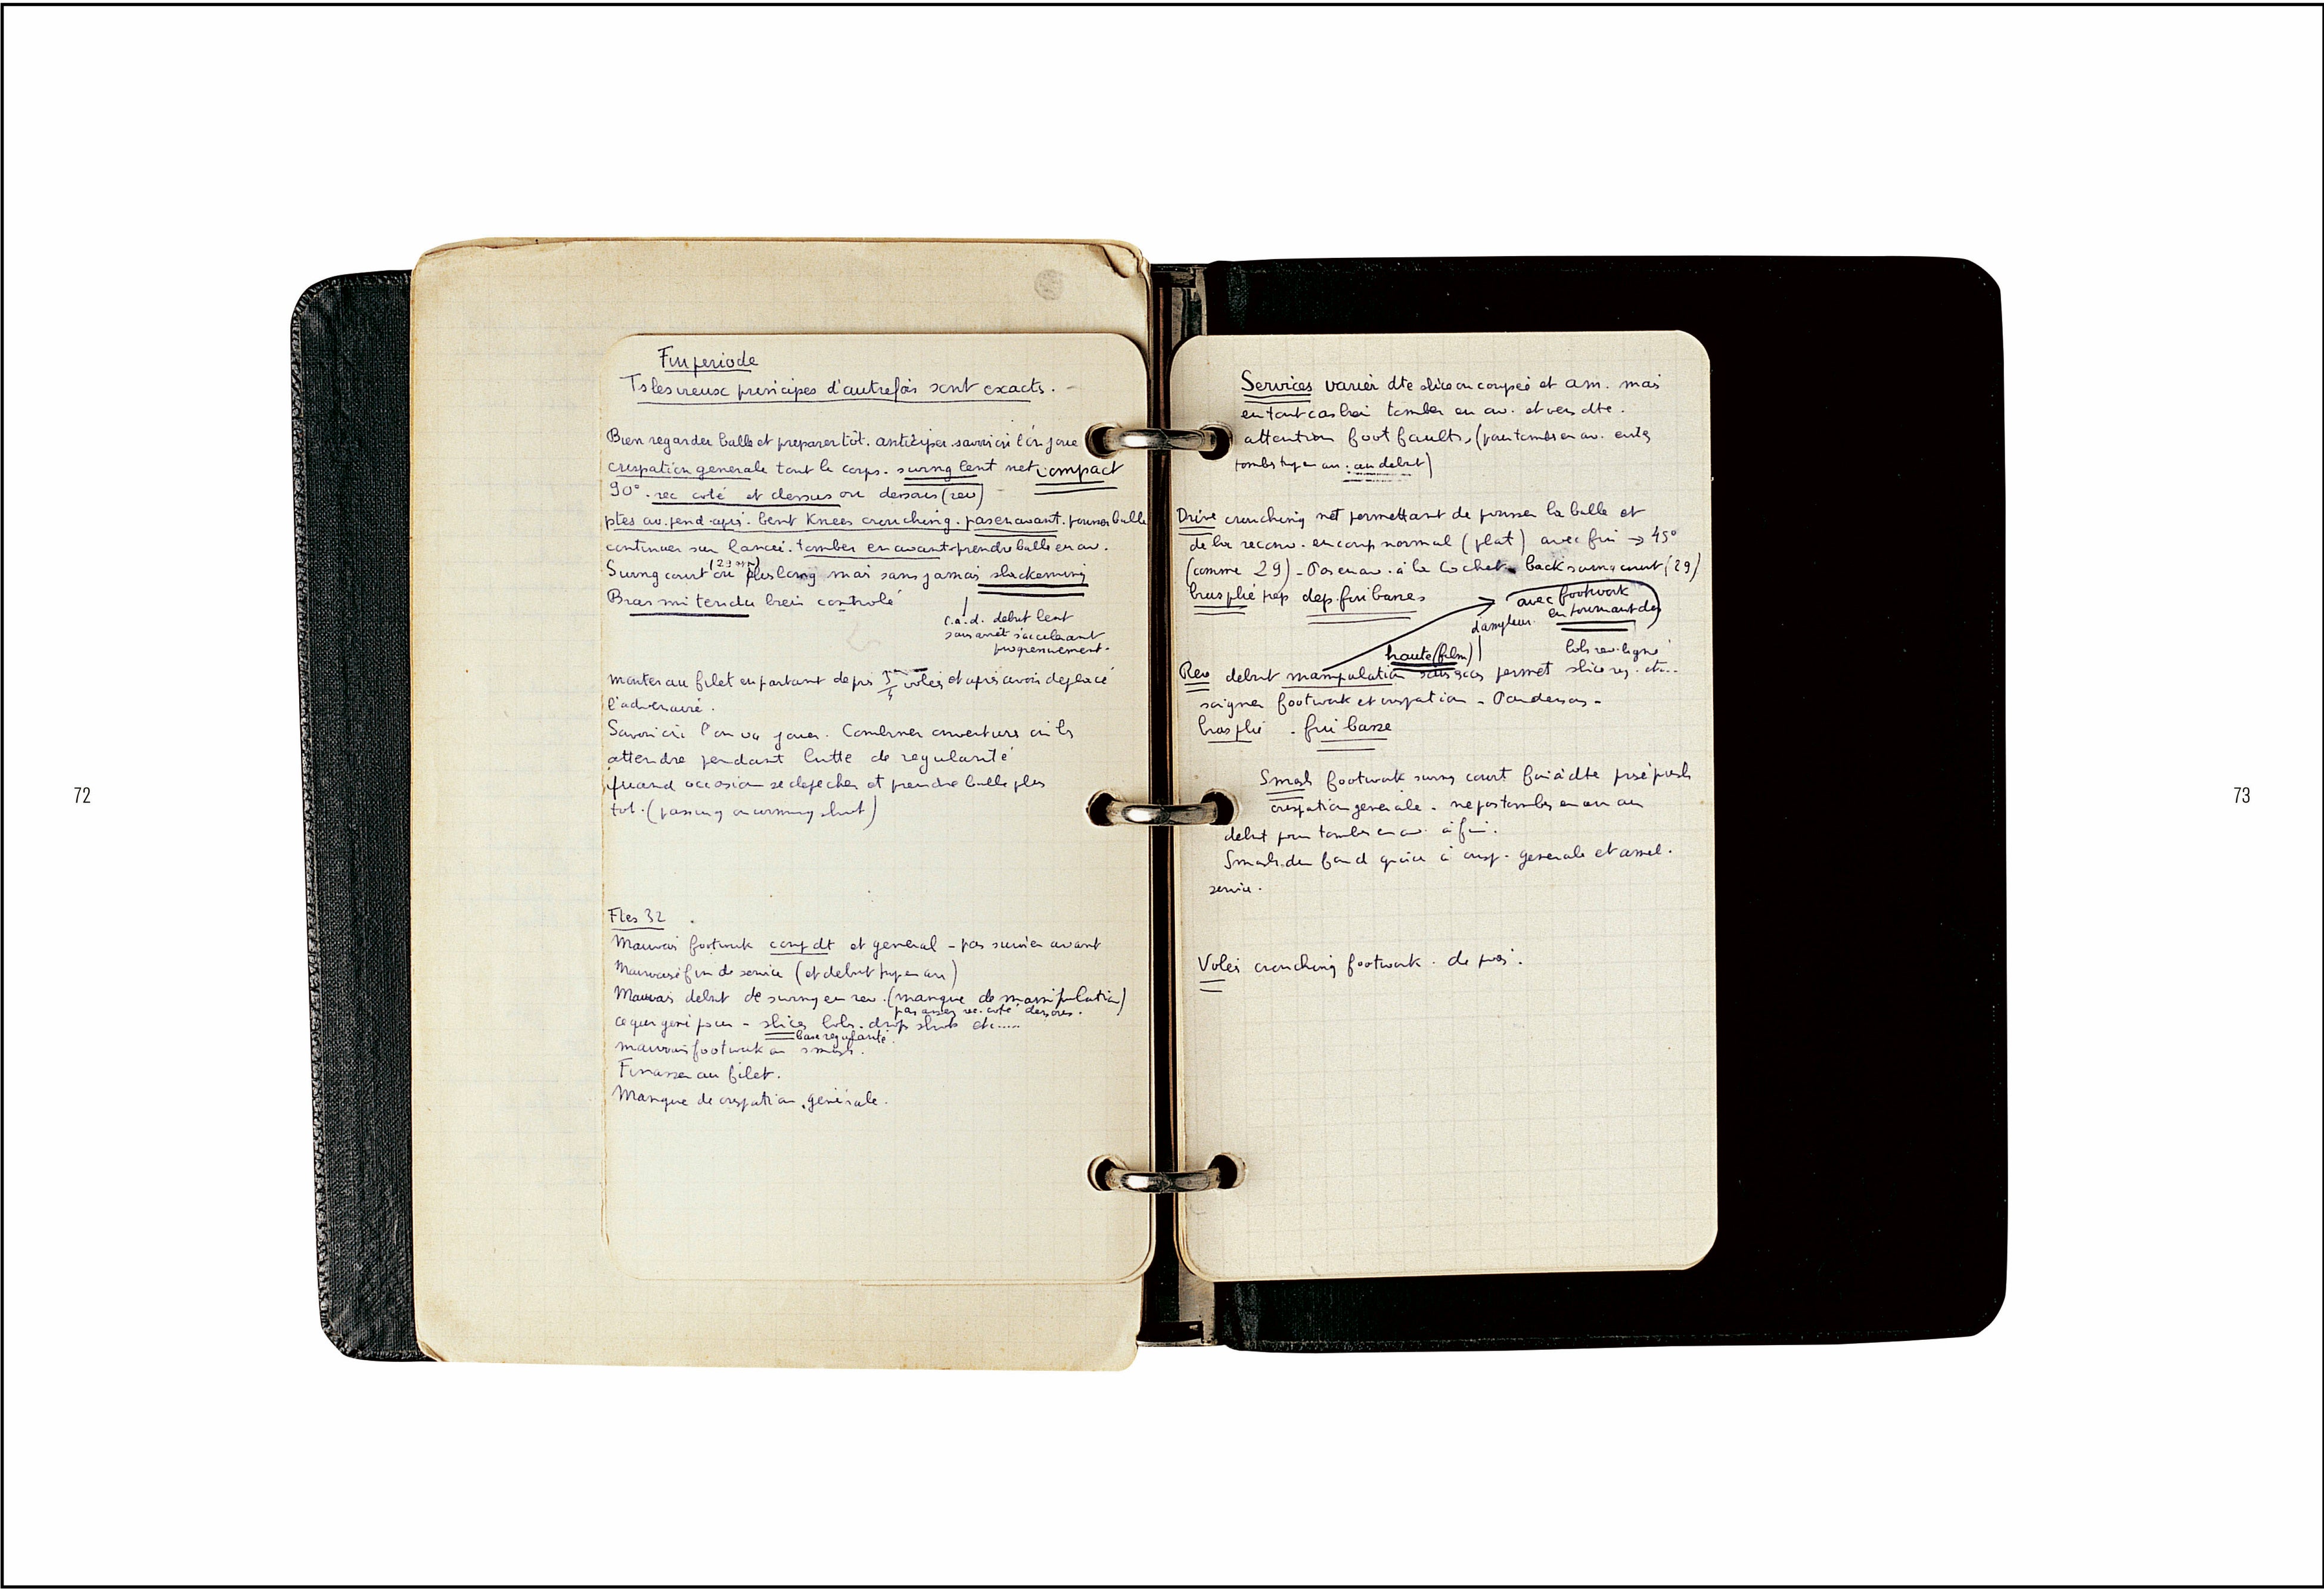 Fin periode
Ts les vieux principes d'autrefois sont exacts. -
Bien regarder balle et preparer tôt. anticiper. savoir où l'on joue
crispation generale tout le corps. swing lent net compact
90°. rec coté et dessus ou dessous (rev)
ptes av. pend. apr. bent knees crouching. pas en avant. pousser balle
continuer sur lancée. tomber en avant. prendre balle en av.
(29)
Swing court ou plus long mais sans jamais slackening
Bras mi tendu bien controlé
c.a.d. debut lent
sans arrêt s'accelerant
progressivement.
monter au filet en partant de près volée et après avoir deplacé
l'adversaire.
Savoir où l'on va jouer. Combiner ouvertures ou les
attendre pendant lutte de regularité
quand occasion se depecher et prendre balle plus
tot. (passing ou winning shot)
Ftes 32
Mauvais footwork coup dt et general - pas suivi en avant
Mauvaise fin de service (et debut trop en av)
Mauvais debut de swing en rev. (manque de manipulation)
pas assez rec. coté dessous.
ce qui gene pour - slices lobs. drop shots etc.....
base regularité
mauvais footwork au smash.
Finasser au filet.
Manque de crispation generale.
72
Services varier dte slice ou coupés et am. mais
en tout cas bien tomber en av. et vers dte.
attention foot faults, (pour tomber en av. eviter
tomber trop en av. au debut)
Drive crouching net permettant de pousser la balle et
de la recouv. en coup normal (plat) avec fin → 45°
(comme 29) - Pas en av. à la Cochet back swing court (29)
bras plié prep dep. fin basses
avec footwork
en tournant dos
d'ampleur
haute (film)
lobs rev. ligne
Rev debut manipulation permet slice rev. etc...
soigner footwork et crispation - Pas dessus -
bras plié . fin basse
Smash footwork swing court fin à dte prise push
crispation generale - ne pas tomber en av au
debut pour tomber en av. à fin.
Smash du fond grace à crisp. generale et amel.
service.
Volée crouching footwork. de près.
73